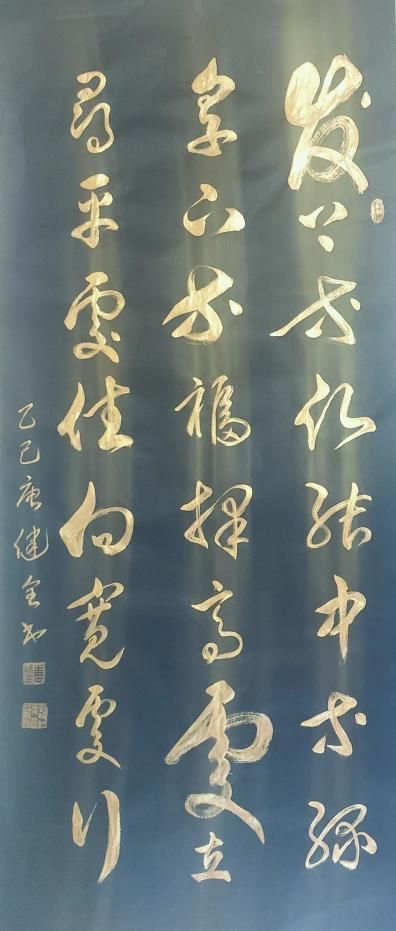 发上等愿结中等缘
享下等福择高處立
尋平處住向寬處行
乙巳唐健全书